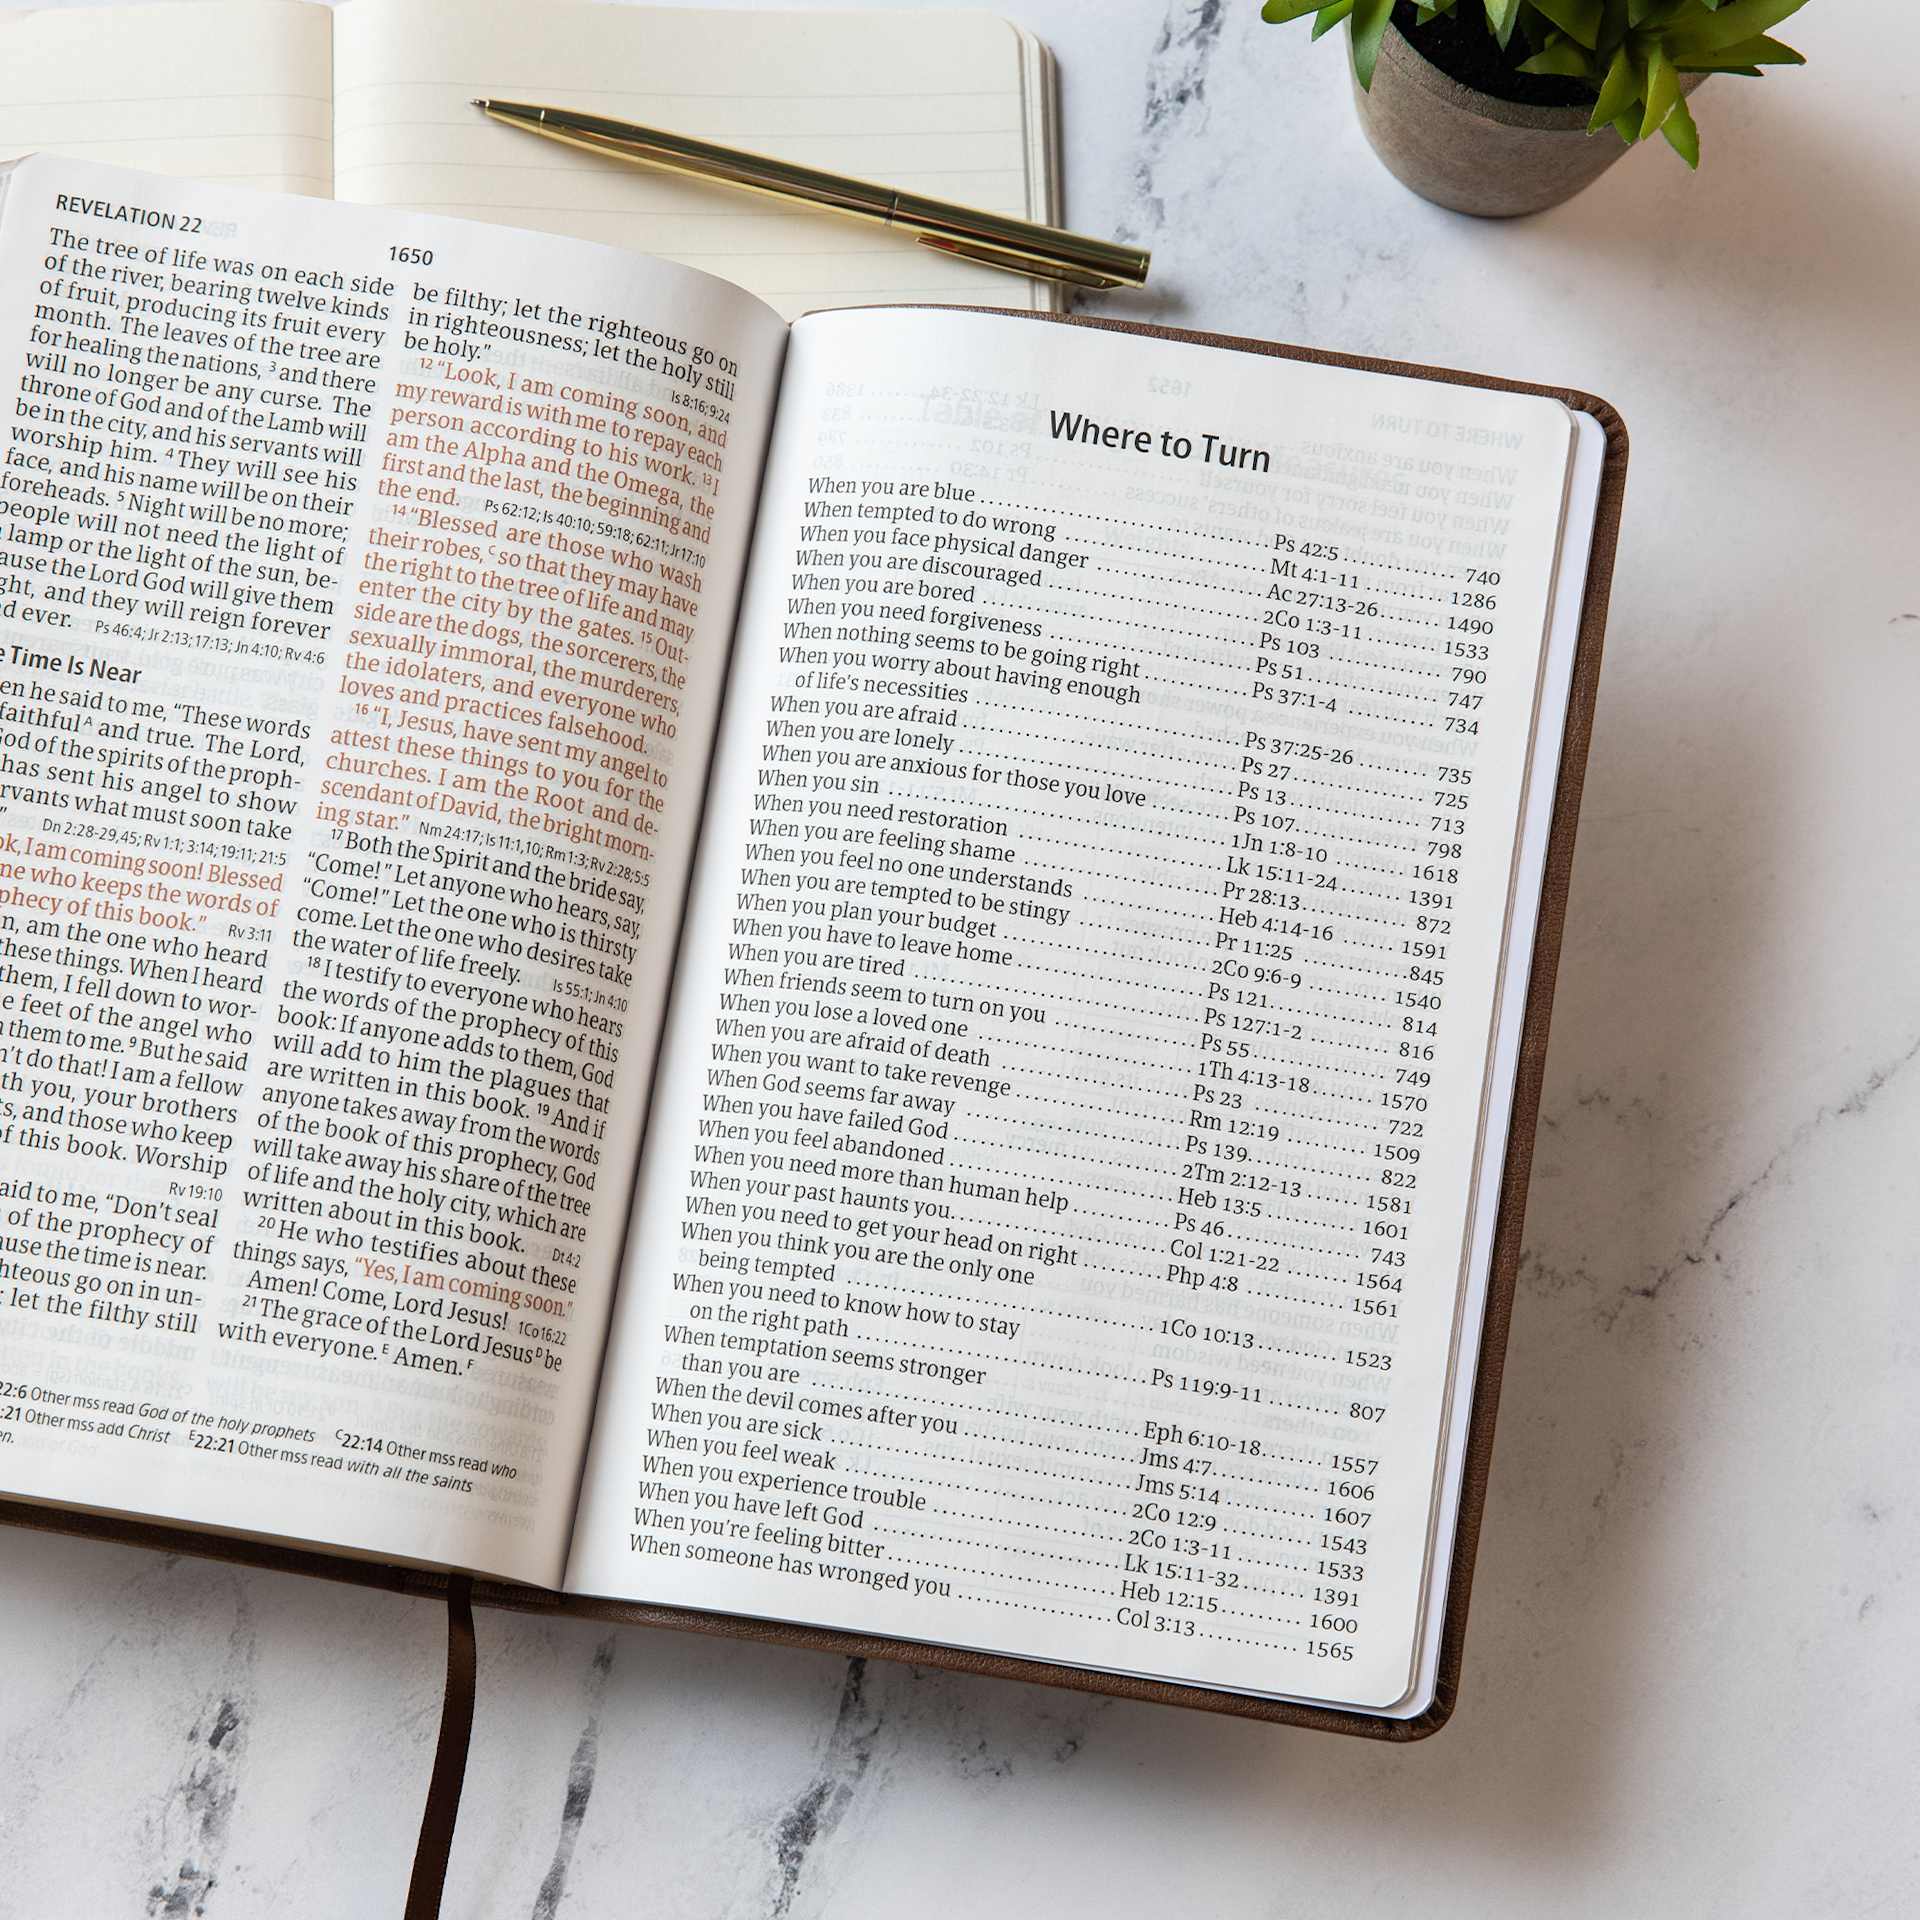 REVELATION 22
1650
The tree of life was on each side
of the river, bearing twelve kinds
of fruit, producing its fruit every
month. The leaves of the tree are
for healing the nations, 3 and there
will no longer be any curse. The
throne of God and of the Lamb will
be in the city, and his servants will
worship him. 4 They will see his
face, and his name will be on their
foreheads. 5 Night will be no more;
people will not need the light of
lamp or the light of the sun, be-
cause the Lord God will give them
light, and they will reign forever
ever. Ps 46:4; Jr 2:13; 17:13; Jn 4:10; Rv 4:6
Time Is Near
he said to me, “These words
faithful A and true. The Lord,
God of the spirits of the proph-
has sent his angel to show
servants what must soon take
Dn 2:28-29,45; Rv 1:1; 3:14; 19:11; 21:5
I am coming soon! Blessed
one who keeps the words of
prophecy of this book.” Rv 3:11
am the one who heard
these things. When I heard
them, I fell down to wor-
feet of the angel who
them to me. 9 But he said
do that! I am a fellow
with you, your brothers
and those who keep
of this book. Worship
Rv 19:10
said to me, “Don’t seal
of the prophecy of
because the time is near.
go on in un-
let the filthy still
be filthy; let the righteous go on
in righteousness; let the holy still
be holy.” Is 8:16; 9:24
12 “Look, I am coming soon, and
my reward is with me to repay each
person according to his work. 13 I
am the Alpha and the Omega, the
first and the last, the beginning and
the end. Ps 62:12; Is 40:10; 59:18; 62:11; Jr 17:10
14 “Blessed are those who wash
their robes, C so that they may have
the right to the tree of life and may
enter the city by the gates. 15 Out-
side are the dogs, the sorcerers, the
sexually immoral, the murderers,
the idolaters, and everyone who
loves and practices falsehood.
16 “I, Jesus, have sent my angel to
attest these things to you for the
churches. I am the Root and de-
scendant of David, the bright morn-
ing star.” Nm 24:17; Is 11:1,10; Rm 1:3; Rv 2:28; 5:5
17 Both the Spirit and the bride say,
“Come!” Let anyone who hears, say,
“Come!” Let the one who is thirsty
come. Let the one who desires take
the water of life freely. Is 55:1; Jn 4:10
18 I testify to everyone who hears
the words of the prophecy of this
book: If anyone adds to them, God
will add to him the plagues that
are written in this book. 19 And if
anyone takes away from the words
of the book of this prophecy, God
will take away his share of the tree
of life and the holy city, which are
written about in this book. Dt 4:2
20 He who testifies about these
things says, “Yes, I am coming soon.”
Amen! Come, Lord Jesus! 1Co 16:22
21 The grace of the Lord Jesus D be
with everyone. E Amen. F
22:6 Other mss read God of the holy prophets C22:14 Other mss read who
:21 Other mss add Christ E22:21 Other mss read with all the saints
Where to Turn
When you are blue .......... Ps 42:5 .......... 740
When tempted to do wrong .......... Mt 4:1-11 .......... 1286
When you face physical danger .......... Ac 27:13-26 .......... 1490
When you are discouraged .......... 2Co 1:3-11 .......... 1533
When you are bored .......... Ps 103 .......... 790
When you need forgiveness .......... Ps 51 .......... 747
When nothing seems to be going right .......... Ps 37:1-4 .......... 734
When you worry about having enough
of life’s necessities .......... Ps 37:25-26 .......... 735
When you are afraid .......... Ps 27 .......... 725
When you are lonely .......... Ps 13 .......... 713
When you are anxious for those you love .......... Ps 107 .......... 798
When you sin .......... 1Jn 1:8-10 .......... 1618
When you need restoration .......... Lk 15:11-24 .......... 1391
When you are feeling shame .......... Pr 28:13 .......... 872
When you feel no one understands .......... Heb 4:14-16 .......... 1591
When you are tempted to be stingy .......... Pr 11:25 .......... 845
When you plan your budget .......... 2Co 9:6-9 .......... 1540
When you have to leave home .......... Ps 121 .......... 814
When you are tired .......... Ps 127:1-2 .......... 816
When friends seem to turn on you .......... Ps 55 .......... 749
When you lose a loved one .......... 1Th 4:13-18 .......... 1570
When you are afraid of death .......... Ps 23 .......... 722
When you want to take revenge .......... Rm 12:19 .......... 1509
When God seems far away .......... Ps 139 .......... 822
When you have failed God .......... 2Tm 2:12-13 .......... 1581
When you feel abandoned .......... Heb 13:5 .......... 1601
When you need more than human help .......... Ps 46 .......... 743
When your past haunts you .......... Col 1:21-22 .......... 1564
When you need to get your head on right .......... Php 4:8 .......... 1561
When you think you are the only one
being tempted .......... 1Co 10:13 .......... 1523
When you need to know how to stay
on the right path .......... Ps 119:9-11 .......... 807
When temptation seems stronger
than you are .......... Eph 6:10-18 .......... 1557
When the devil comes after you .......... Jms 4:7 .......... 1606
When you are sick .......... Jms 5:14 .......... 1607
When you feel weak .......... 2Co 12:9 .......... 1543
When you experience trouble .......... 2Co 1:3-11 .......... 1533
When you have left God .......... Lk 15:11-32 .......... 1391
When you’re feeling bitter .......... Heb 12:15 .......... 1600
When someone has wronged you .......... Col 3:13 .......... 1565